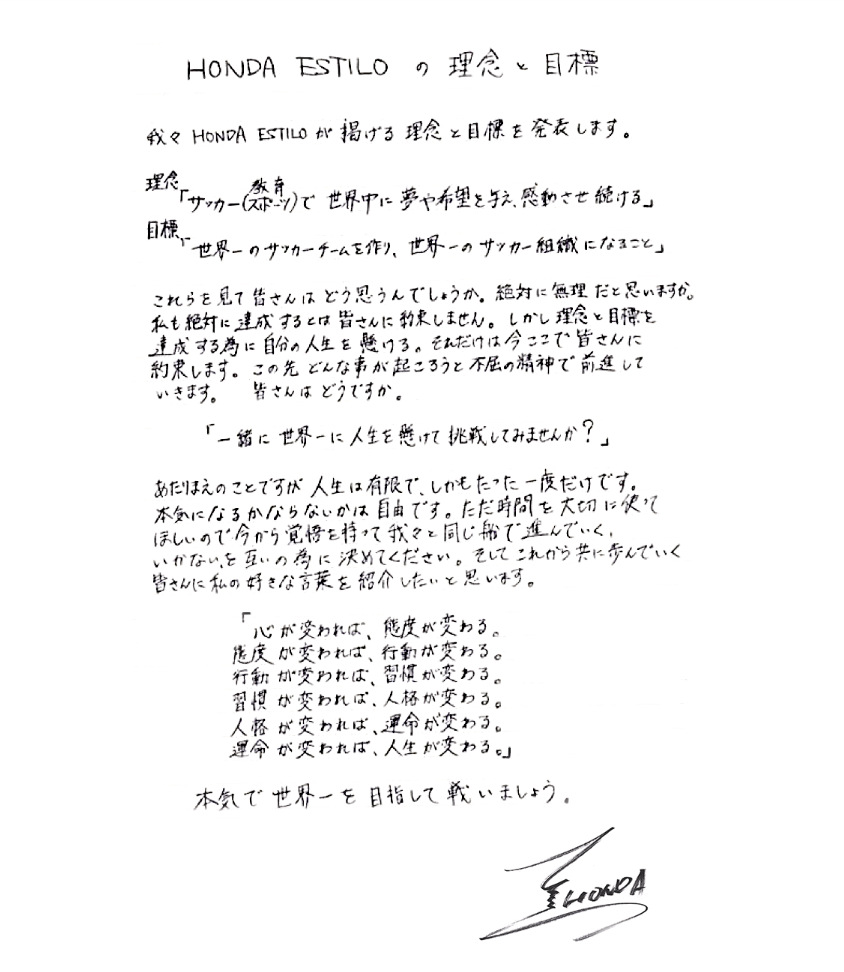 HONDA ESTILO の 理念 と 目標
我々 HONDA ESTILO が 掲げる 理念 と 目標 を 発表します。
理念「サッカー(教育 スポーツ)で 世界中に 夢や希望を与え、感動させ 続ける」
目標「世界一のサッカーチームを作り、世界一の サッカー組織になること」
これらを見て 皆さんは どう思うんでしょうか。絶対に無理だと思いますか。
私も絶対に達成するとは皆さんに約束しません。しかし理念と目標を
達成する為に自分の人生を懸ける。それだけは今ここで皆さんに
約束します。この先 どんな事が起ころうと不屈の精神で前進して
いきます。 皆さんは どうですか。
「一緒に 世界一に 人生を懸けて 挑戦してみませんか?」
あたりまえのことですが 人生は有限で、しかもたった一度だけです。
本気になるかならないかは自由です。ただ時間を大切に使って
ほしいので今から覚悟を持って我々と同じ船で進んでいく、
いかない、を互いの為に決めてください。そしてこれから共に歩んでいく
皆さんに私の好きな言葉を紹介したいと思います。
「心が変われば、態度が変わる。
態度が変われば、行動が変わる。
行動が変われば、習慣が変わる。
習慣が変われば、人格が変わる。
人格が変われば、運命が変わる。
運命が変われば、人生が変わる。」
本気で世界一を目指して戦いましょう。
HONDA